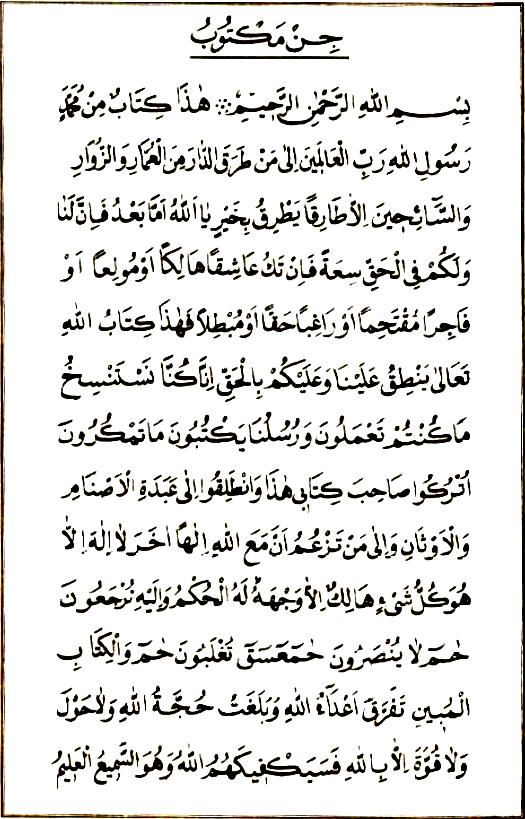 جِنْ مَكْتُوبُ
بِسْمِ اللهِ الرَّحْمٰنِ الرَّحِيمِ ⁘ هٰذَا كِتَابٌ مِنْ مُحَمَّدٍ
رَسُولِ اللهِ رَبِّ الْعَالَمِينَ اِلٰى مَنْ طَرَقَ الدَّارَ مِنَ الْعُمَّارِ وَالزُّوَّارِ
وَالسَّائِحِينَ اِلاَّ طَارِقًا يَطْرِقُ بِخَيْرٍ يَا اَللهُ اَمَّا بَعْدُ فَاِنَّ لَنَا
وَلَكُمْ فِى الْحَقِّ سِعَةً فَاِنْ تَكُ عَاشِقًا هَالِكًا اَوْ مُولِعًا اَوْ
فَاجِرًا مُقْتَحِمًا اَوْ رَاغِبًا حَقًّا اَوْ مُبْطِلاً فَهٰذَا كِتَابُ اللهِ
تَعَالٰى يَنْطِقُ عَلَيْنَا وَعَلَيْكُمْ بِالْحَقِّ اِنَّا كُنَّا نَسْتَنْسِخُ
مَا كُنْتُمْ تَعْمَلُونَ وَرُسُلُنَا يَكْتُبُونَ مَا تَمْكُرُونَ
اُتْرُكُوا صَاحِبَ كِتَابِى هٰذَا وَانْطَلِقُوا اِلٰى عَبَدَةِ الْاَصْنَامِ
وَالْاَوْثَانِ وَاِلٰى مَنْ تَزْعُمُ اَنَّ مَعَ اللهِ اِلٰهًا اٰخَرَ لَا اِلٰهَ اِلَّا
هُوَ كُلُّ شَىْءٍ هَالِكٌ اِلاَّ وَجْهَهُ لَهُ الْحُكْمُ وَاِلَيْهِ تُرْجَعُونَ
حٰمٓ لَا يُنْصَرُونَ حٰمٓعٓسٓقٓ تُغْلَبُونَ حٰمٓ وَالْكِتَابِ
الْمُبِينِ تَفَرَّقَ اَعْدَآءُ اللهِ وَبَلَغَتْ حُجَّةُ اللهِ وَلَاحَوْلَ
وَلَا قُوَّةَ اِلاَّ بِاللهِ فَسَيَكْفِيكَهُمُ اللهُ وَهُوَ السَّمِيعُ الْعَلِيمُ